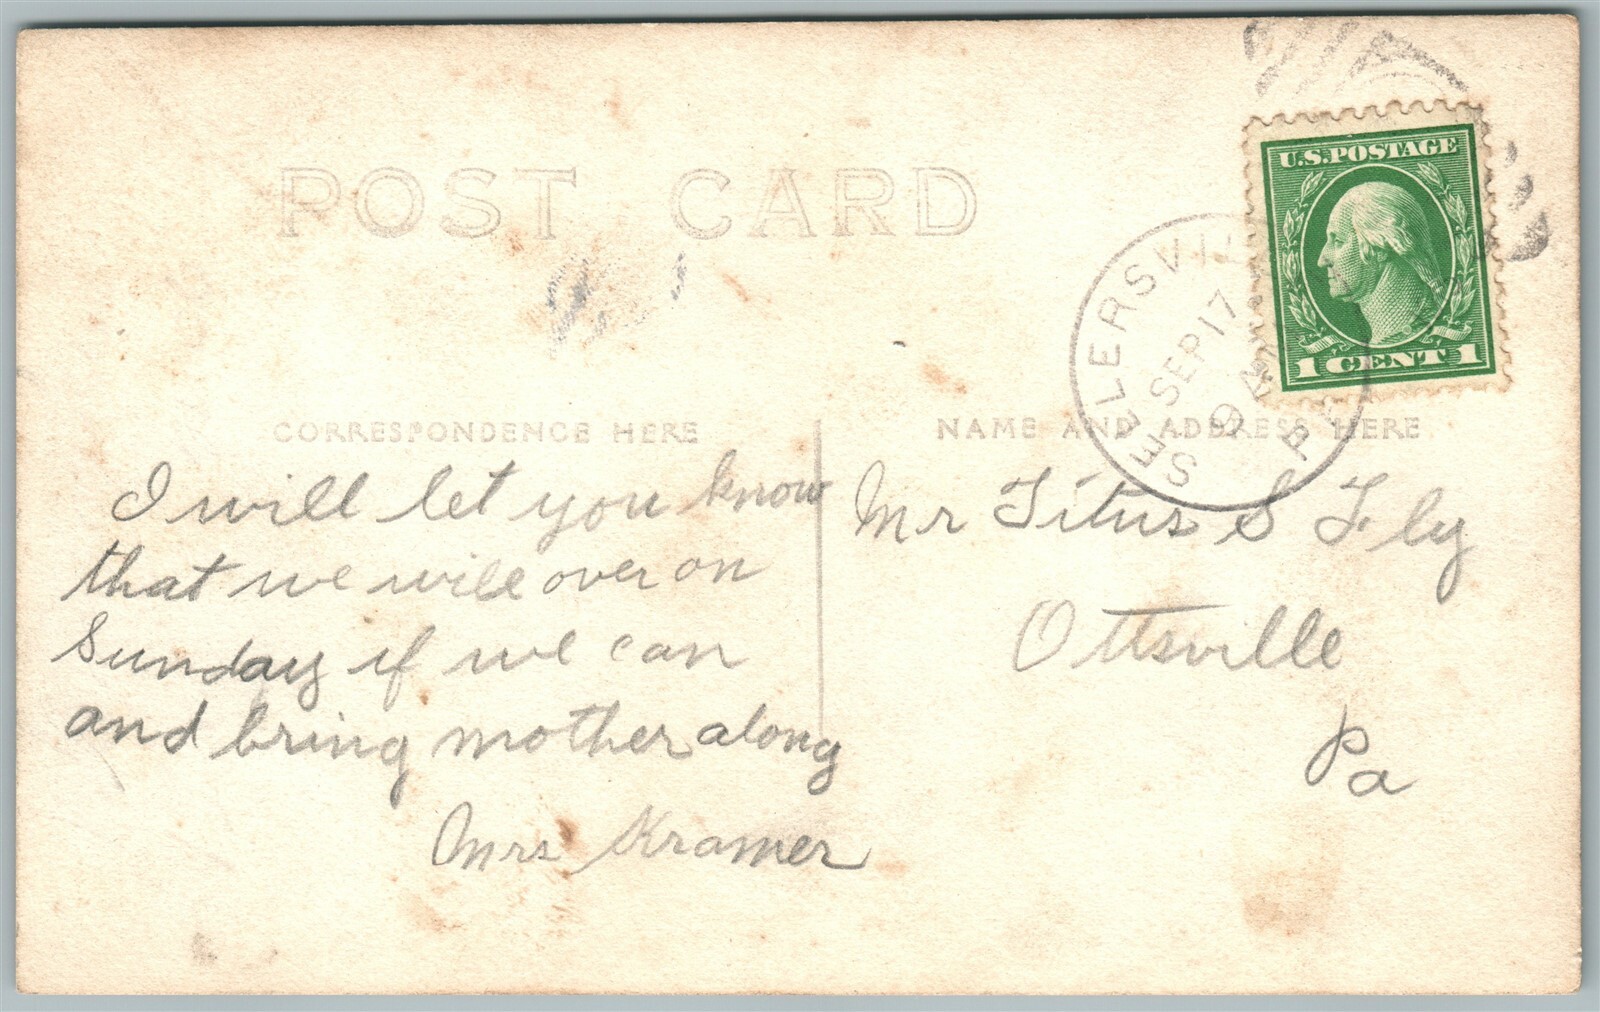 POST CARD
U.S. POSTAGE
1 CENT 1
SELLERSVIL
SEP 17
9 A
PA
CORRESPONDENCE HERE
NAME AND ADDRESS HERE
I will let you know
that we will over on
Sunday if we can
and bring mother along
Mrs Kramer
Mr Titus S Fly
Ottsville
Pa